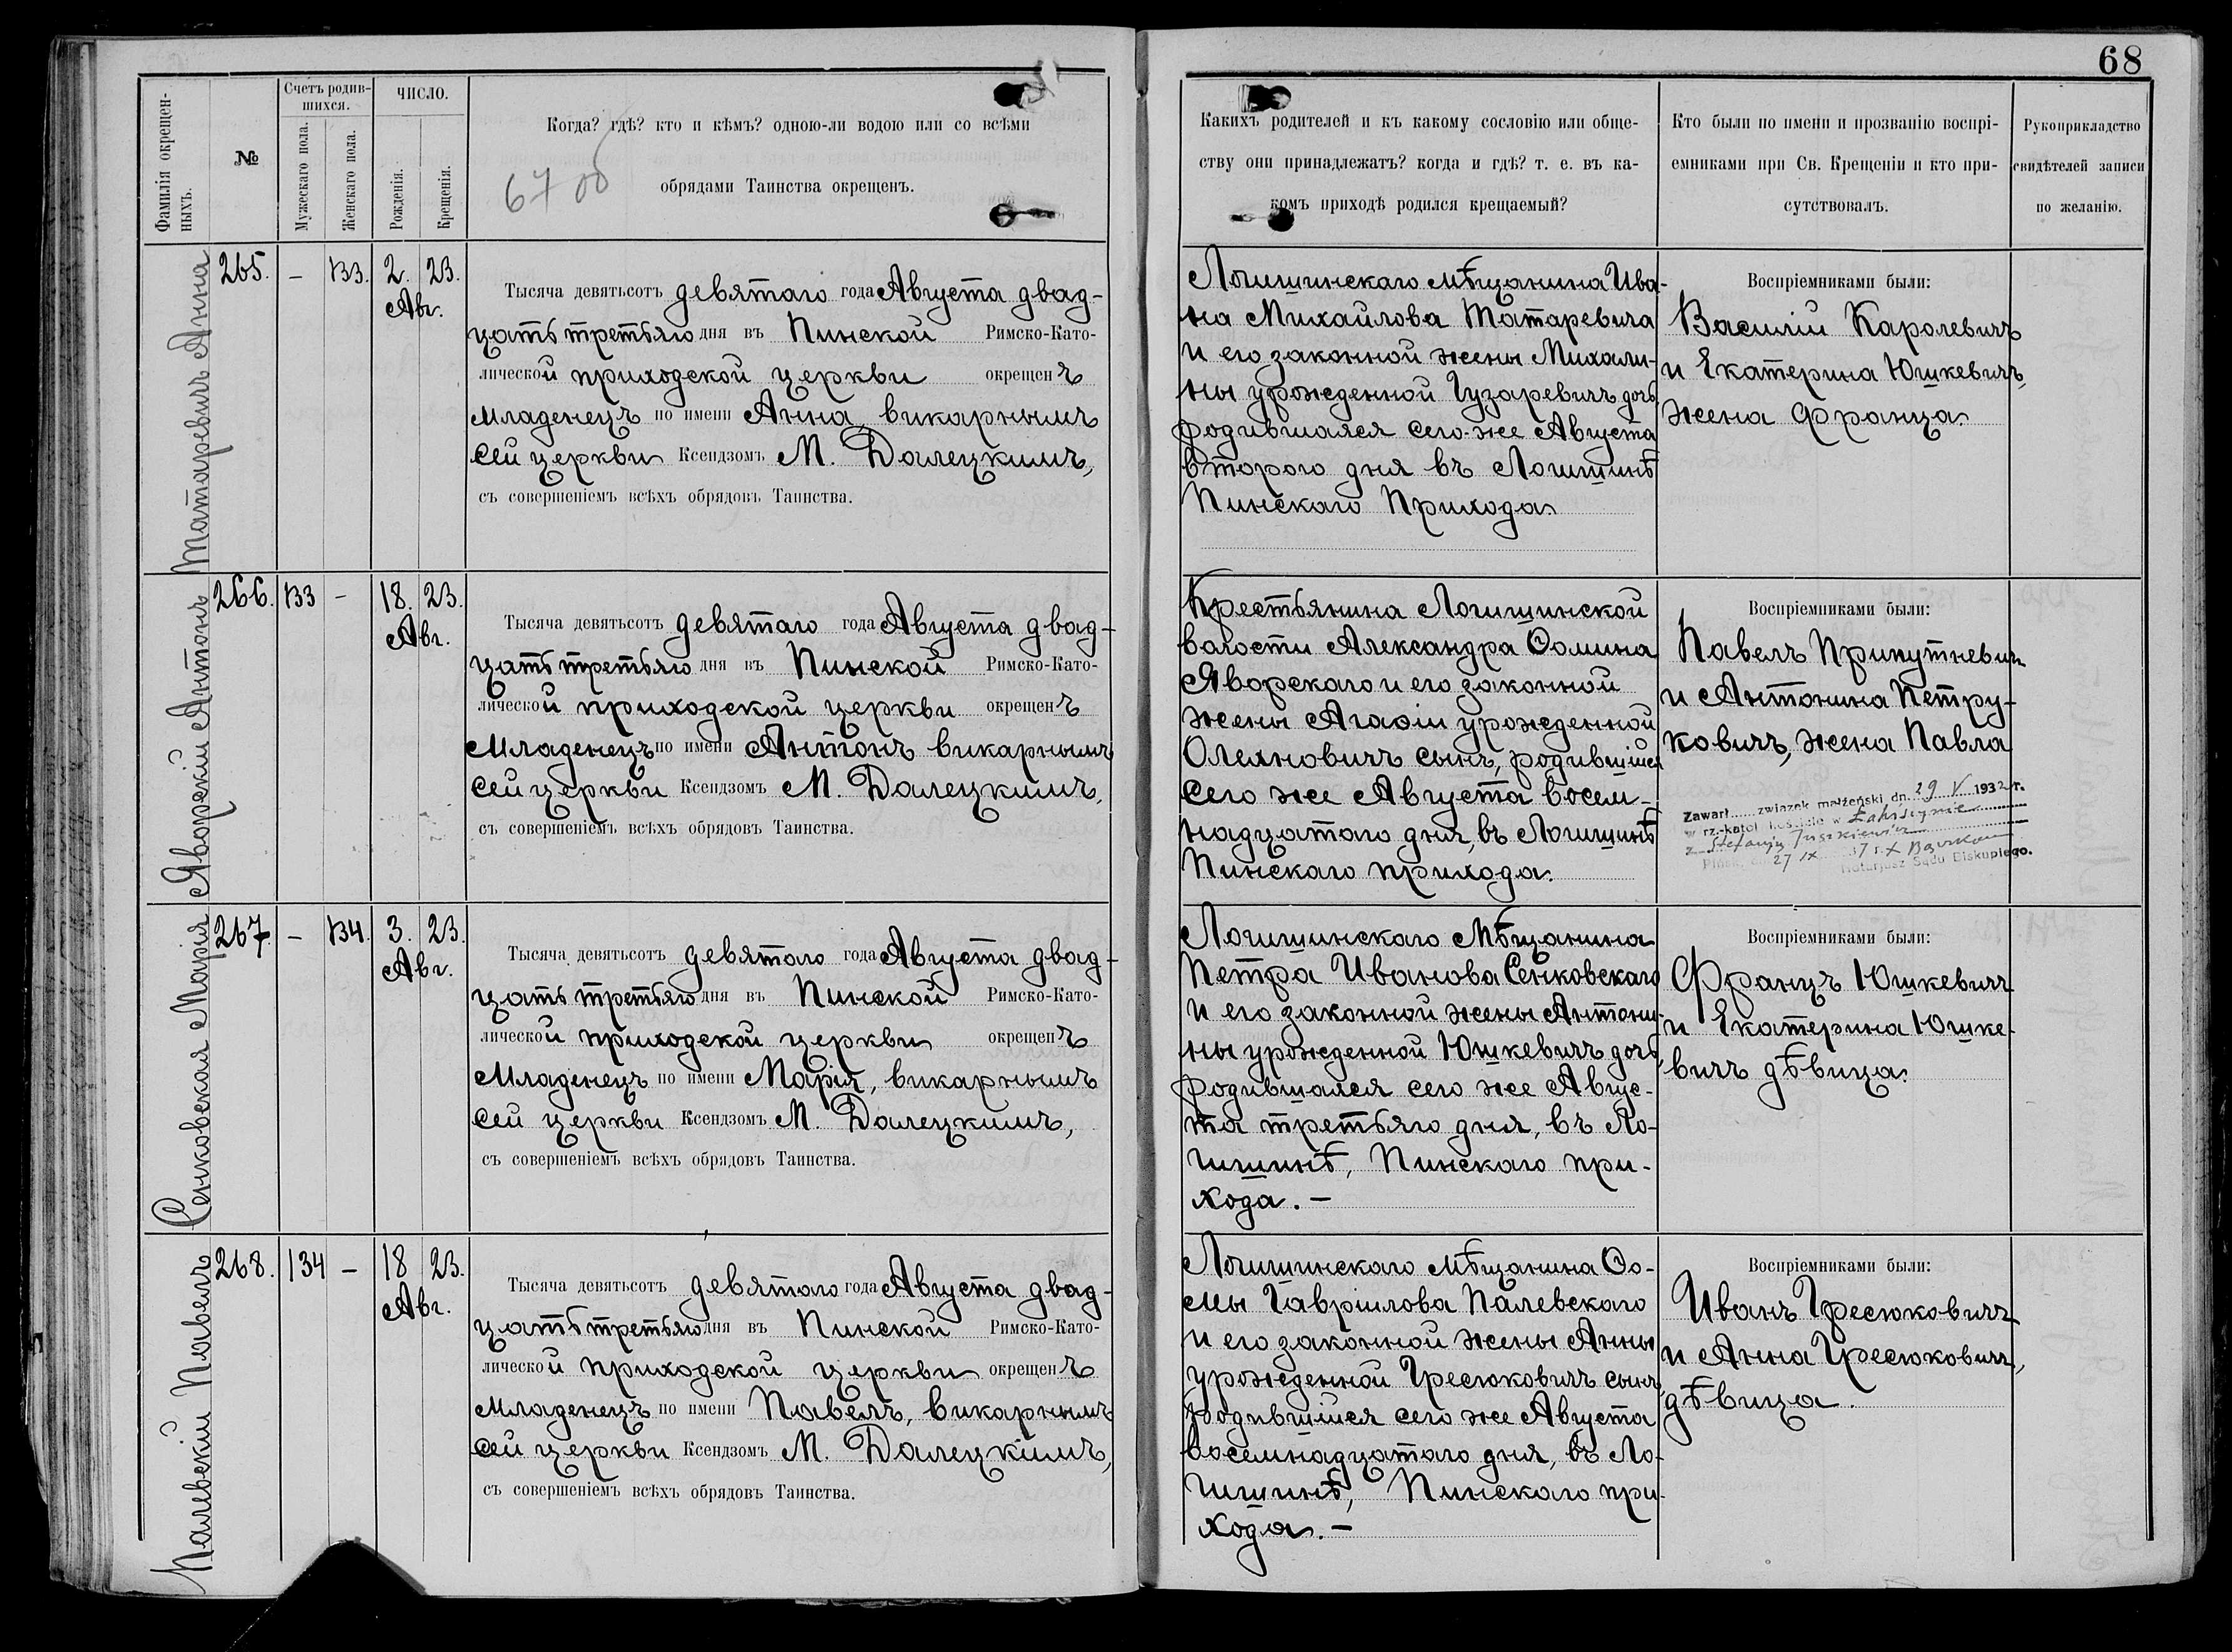 68
Фамилія окрещен-
ныхъ.
№
Счетъ родив-
шихся.
Мужескаго пола.
Женскаго пола.
ЧИСЛО.
Рожденія.
Крещенія.
Когда? гдѣ? кто и кѣмъ? одною-ли водою или со всѣми
обрядами Таинства окрещенъ.
6700
Какихъ родителей и къ какому сословію или обще-
ству они принадлежатъ? когда и гдѣ? т. е. въ ка-
комъ приходѣ родился крещаемый?
Кто были по имени и прозванію воспрі-
емниками при Св. Крещеніи и кто при-
сутствовалъ.
Рукоприкладство
свидѣтелей записи
по желанію.
Татаревичъ Анна
265. – 133. 2. 23.
Авг.
Тысяча девятьсотъ девятаго года Августа двад-
цать третьяго дня въ Пинской Римско-Като-
лической приходской церкви окрещенъ
младенецъ по имени Анна, викарнымъ
сей церкви Ксендзомъ М. Далецкимъ,
съ совершеніемъ всѣхъ обрядовъ Таинства.
Логишинскаго мѣщанина Ива-
на Михайлова Татаревича
и его законной жены Михали-
ны урожденной Гузаревичъ дочь,
родившаяся сего-же Августа
второго дня въ Логишинѣ
Пинскаго Прихода.
Воспріемниками были:
Василій Каролевичъ
и Екатерина Юшкевичъ,
жена Франца.
Яворскій Антонъ
266. 133 – 18. 23.
Авг.
Тысяча девятьсотъ девятаго года Августа двад-
цать третьяго дня въ Пинской Римско-Като-
лической приходской церкви окрещенъ
младенецъ по имени Антонъ викарнымъ
сей церкви Ксендзомъ М. Далецкимъ,
съ совершеніемъ всѣхъ обрядовъ Таинства.
Крестьянина Логишинской
волости Александра Ѳомина
Яворскаго и его законной
жены Агаѳіи урожденной
Олехновичъ сынъ, родившійся
сего же Августа восем-
надцатаго дня, въ Логишинѣ
Пинскаго прихода.
Воспріемниками были:
Павелъ Прикутневичъ
и Антонина Петру-
ковичъ, жена Павла
Zawarł związek małżeński dn. 29 V 1932 r.
w rz.-katol kościele w Łahiszynie
z Stefanją Juszkiewicz
27 IX 37 r. X
Notarjusz Sądu Biskupiego.
Сенковская Марія
267. – 134. 3. 23.
Авг.
Тысяча девятьсотъ девятаго года Августа двад-
цать третьяго дня въ Пинской Римско-Като-
лической приходской церкви окрещенъ
младенецъ по имени Марія, викарнымъ
сей церкви Ксендзомъ М. Далецкимъ,
съ совершеніемъ всѣхъ обрядовъ Таинства.
Логишинскаго Мѣщанина
Петра Иванова Сенковскаго
и его законной жены Антони-
ны урожденной Юшкевичъ дочь,
родившаяся сего же Авгус-
та третьяго дня, въ Ло-
гишинѣ, Пинскаго при-
хода. –
Воспріемниками были:
Францъ Юшкевичъ
и Екатерина Юшке-
вичъ дѣвица.
Палевскій Павелъ
268. 134 – 18 23.
Авг.
Тысяча девятьсотъ девятаго года Августа двад-
цать третьяго дня въ Пинской Римско-Като-
лической приходской церкви окрещенъ
младенецъ по имени Павелъ, викарнымъ
сей церкви Ксендзомъ М. Далецкімъ,
съ совершеніемъ всѣхъ обрядовъ Таинства.
Логишинскаго мѣщанина Ѳо-
мы Гавріилова Палевскаго
и его законной жены Анны
урожденной Гресюковичъ сынъ,
родившійся сего же Августа
восемнадцатаго дня, въ Ло-
гишинѣ, Пинскаго при-
хода. –
Воспріемниками были:
Иванъ Гресюковичъ
и Анна Гресюковичъ,
дѣвица.